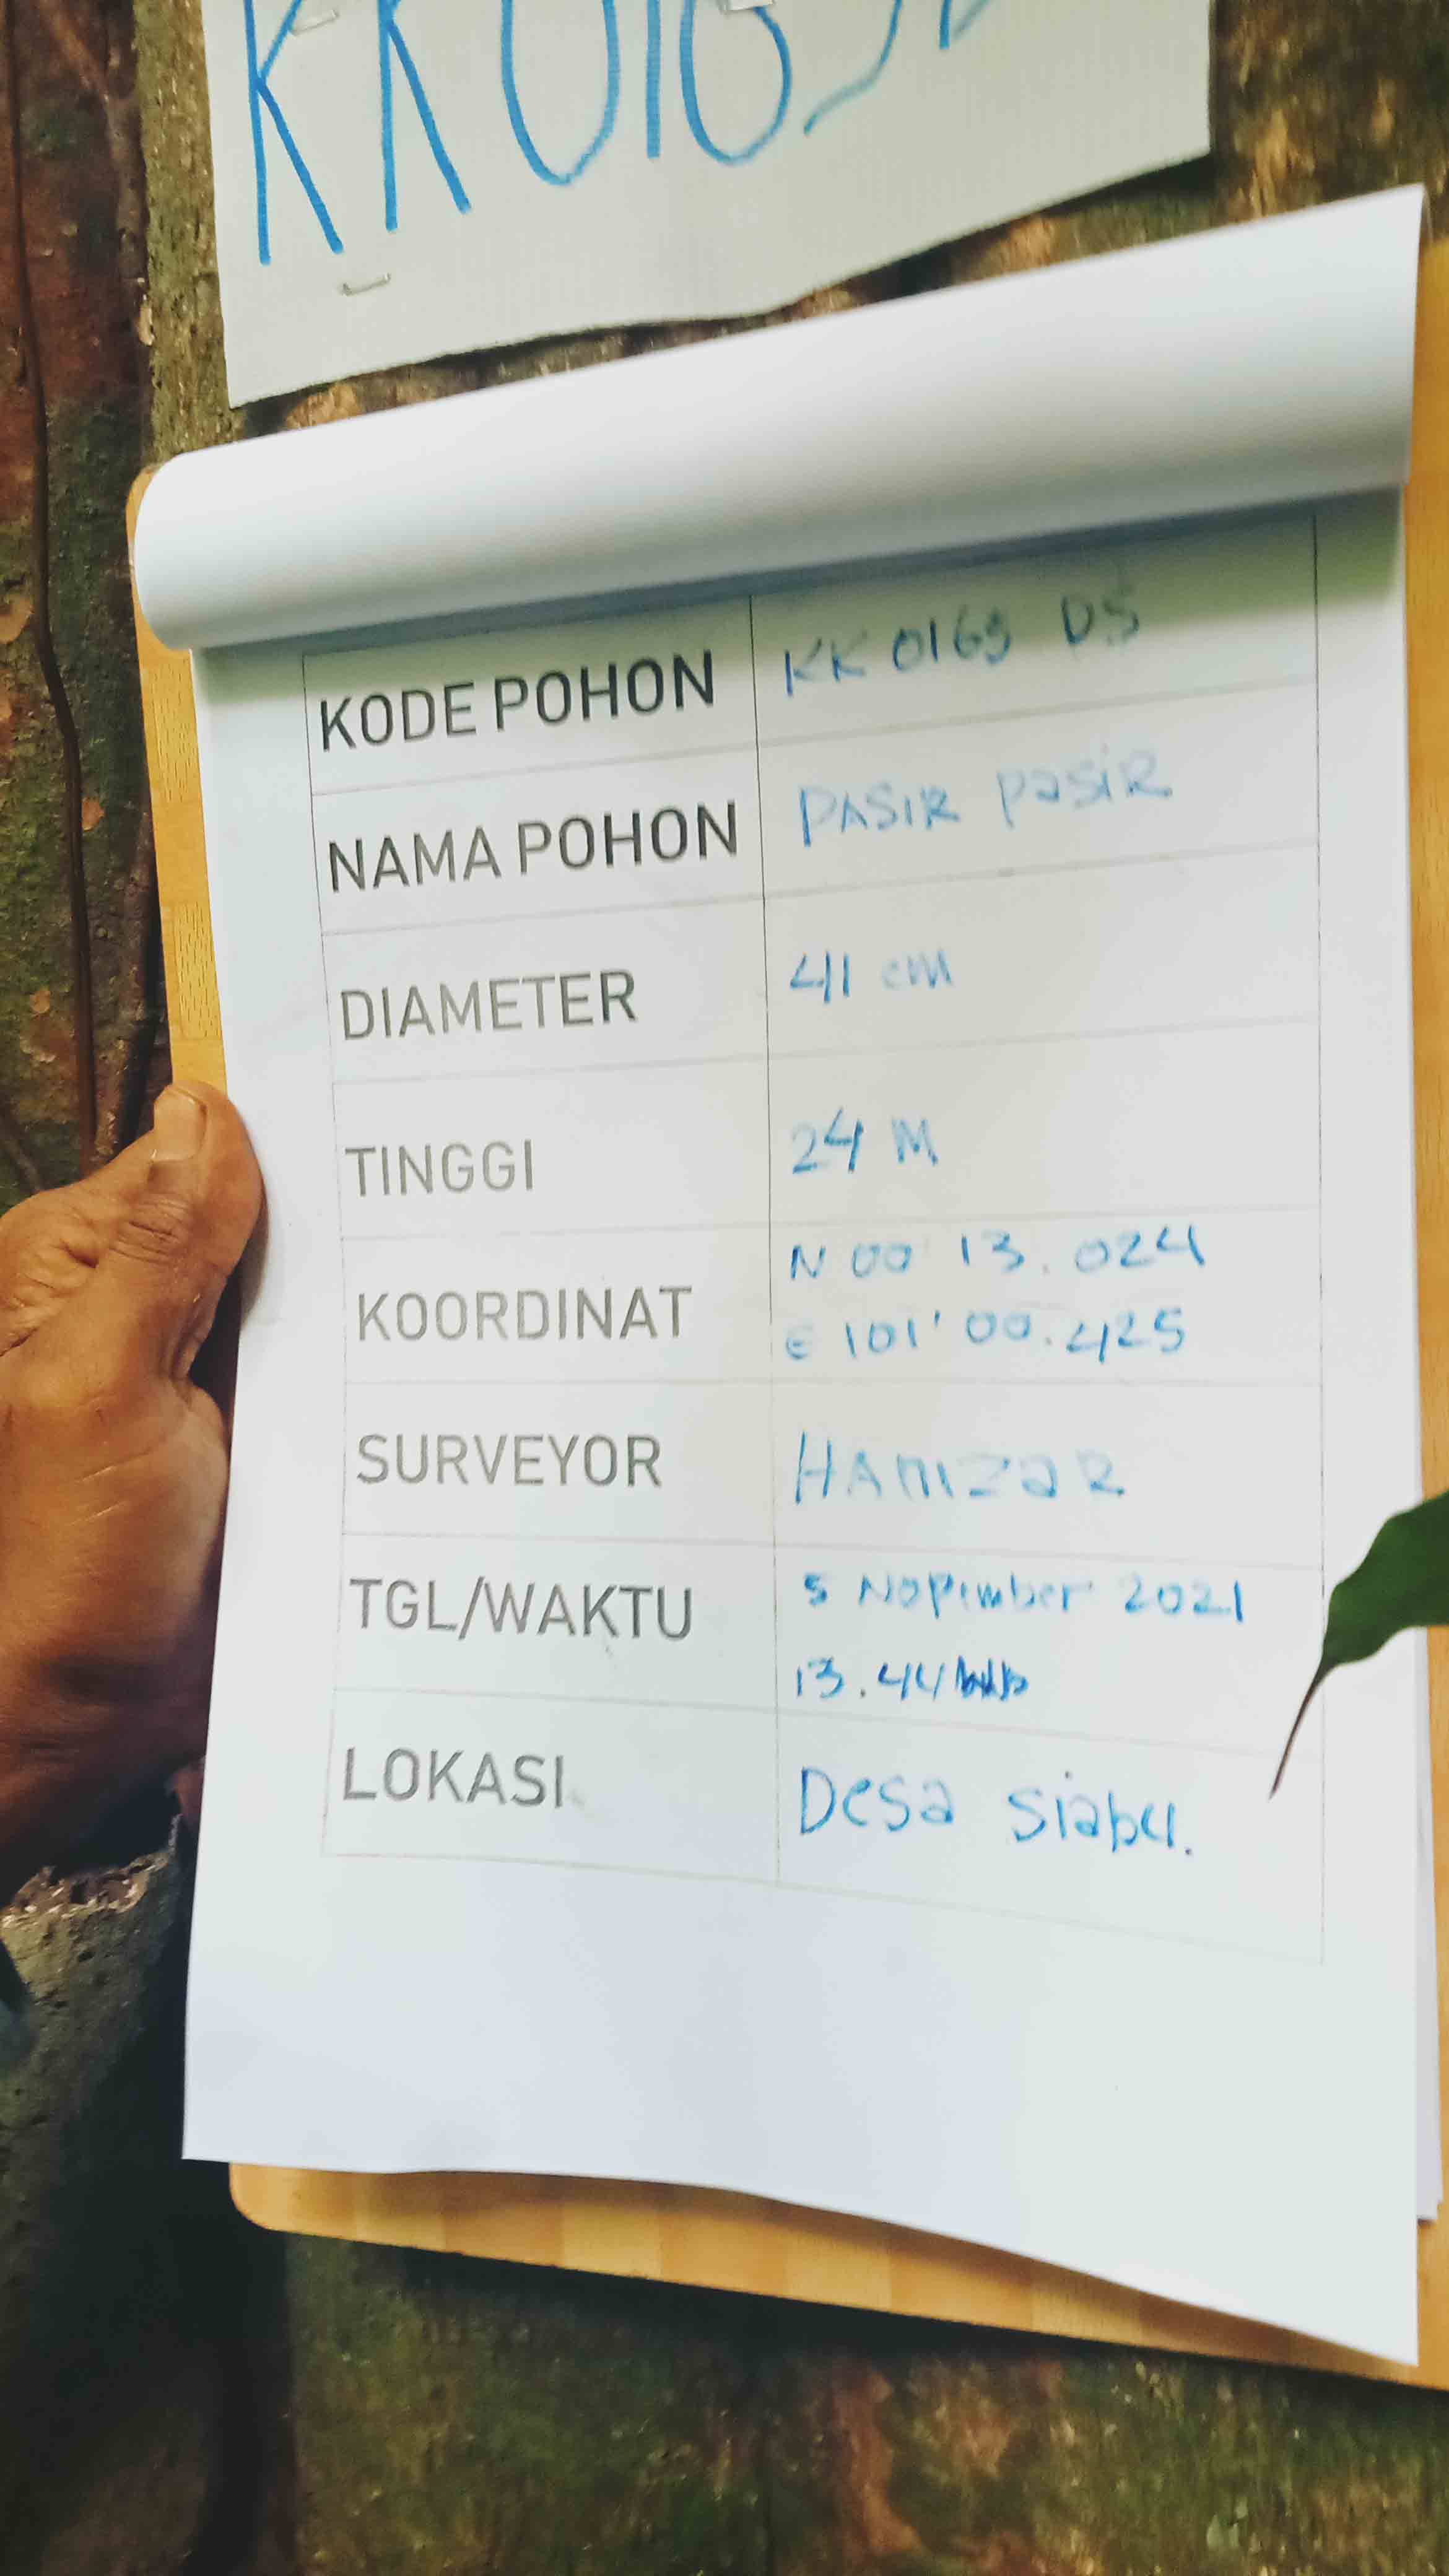 KODE POHON KK 0169 DS
NAMA POHON PASIR pasiR
DIAMETER 41 cm
TINGGI 24 M
KOORDINAT N 00 13.024
E 101' 00.425
SURVEYOR HAmzaR
TGL/WAKTU 5 Nopember 2021
13.44 wib
LOKASI Desa Siabu.